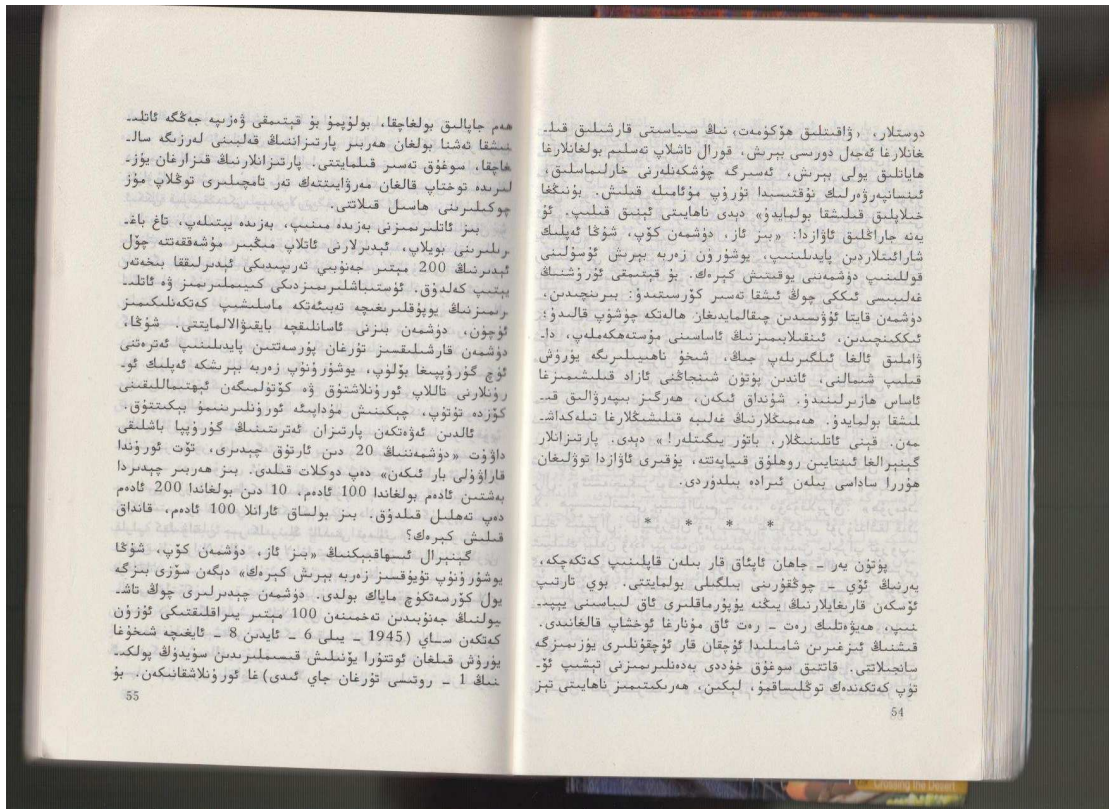 دوستلار، ‹ۋاقىتلىق ھۆكۈمەت› نىڭ سىياسىتى قارشىلىق قىلـ
غانلارغا ئەجەل دورىسى بېرىش، قورال تاشلاپ تەسلىم بولغانلارغا
ھاياتلىق يولى بېرىش، ئەسىرگە چۈشكەنلەرنى خارلىماسلىق،
ئىنسانپەرۋەرلىك نۇقتىسىدا تۇرۇپ مۇئامىلە قىلىش. بۇنىڭغا
خىلاپلىق قىلىشقا بولمايدۇ» دېدى ناھايىتى ئېنىق قىلىپ. ئۇ
يەنە جاراڭلىق ئاۋازدا: «بىز ئاز، دۈشمەن كۆپ، شۇڭا ئەپلىك
شارائىتلاردىن پايدىلىنىپ، يوشۇرۇن زەربە بېرىش ئۇسۇلىنى
قوللىنىپ دۈشمەننى يوقىتىش كېرەك. بۇ قېتىمقى ئۇرۇشنىڭ
غەلىبىسى ئىككى چوڭ ئىشقا تەسىر كۆرسىتىدۇ: بىرىنچىدىن،
دۈشمەن قايتا ئۇۋىسىدىن چىقالمايدىغان ھالەتكە چۈشۈپ قالىدۇ؛
ئىككىنچىدىن، ئىنقىلابىمىزنىڭ ئاساسىنى مۇستەھكەملەپ، داـ
ۋاملىق ئالغا ئىلگىرىلەپ جىڭ، شىخۇ ناھىيىلىرىگە يۈرۈش
قىلىپ شىمالنى، ئاندىن پۈتۈن شىنجاڭنى ئازاد قىلىشىمىزغا
ئاساس ھازىرلىنىدۇ. شۇنداق ئىكەن، ھەرگىز بىپەرۋالىق قىـ
لىشقا بولمايدۇ. ھەممىڭلارنىڭ غەلىبە قىلىشىڭلارغا تىلەكداشـ
مەن. قېنى ئاتلىنىڭلار، باتۇر يىگىتلەر!» دېدى. پارتىزانلار
گېنېرالغا ئىنتايىن روھلۇق قىياپەتتە، يۇقىرى ئاۋازدا توۋلىغان
ھۇررا ساداسى بىلەن ئىرادە بىلدۈردى.
* * * *
پۈتۈن يەر ـ جاھان ئاپئاق قار بىلەن قاپلىنىپ كەتكەچكە،
يەرنىڭ ئۆي ـ چوڭقۇرىنى بىلگىلى بولمايتتى. بوي تارتىپ
ئۆسكەن قارىغايلارنىڭ يىڭنە يوپۇرماقلىرى ئاق لىباسىنى يېپىـ
نىپ، ھەيۋەتلىك رەت ـ رەت ئاق مۇنارغا ئوخشاپ قالغانىدى.
قىشنىڭ ئىزغىرىن شامىلىدا ئۇچقان قار ئۇچقۇنلىرى يۈزىمىزگە
سانجىلاتتى. قاتتىق سوغۇق خۇددى بەدەنلىرىمىزنى تېشىپ ئۆـ
تۈپ كەتكەندەك توڭلىساقمۇ، لېكىن، ھەرىكىتىمىز ناھايىتى تېز
54
ھەم جاپالىق بولغاچقا، بولۇپمۇ بۇ قېتىمقى ۋەزىپە جەڭگە ئاتلىـ
نىشقا تەشنا بولغان ھەربىر پارتىزاننىڭ قەلبىنى لەرزىگە سالـ
غاچقا، سوغۇق تەسىر قىلمايتتى. پارتىزانلارنىڭ قىزارغان يۈزـ
لىرىدە توختاپ قالغان مەرۋايىتتەك تەر تامچىلىرى توڭلاپ مۇز
چوكىلىرىنى ھاسىل قىلاتتى.
بىز ئاتلىرىمىزنى بەزىدە مىنىپ، بەزىدە يېتىلەپ، تاغ باغـ
رىلىرىنى بويلاپ، ئېدىرلارنى ئاتلاپ مىڭبىر مۇشەققەتتە چۆل
ئېدىرنىڭ 200 مېتىر جەنۇبىي تەرىپىدىكى ئېدىرلىققا بىخەتەر
يېتىپ كەلدۇق. ئۈستىباشلىرىمىزدىكى كىيىملىرىمىز ۋە ئاتلىـ
رىمىزنىڭ يوپۇقلىرىغىچە تەبىئەتكە ماسلىشىپ كەتكەنلىكىمىز
ئۈچۈن، دۈشمەن بىزنى ئاسانلىقچە بايقىۋالالمايتتى. شۇڭا،
دۈشمەن قارشىلىقسىز تۇرغان پۇرسەتتىن پايدىلىنىپ ئەترەتنى
ئۈچ گۇرۇپپىغا بۆلۈپ، يوشۇرۇنۇپ زەربە بېرىشكە ئەپلىك ئوـ
رۇنلارنى تاللاپ ئورۇنلاشتۇق ۋە كۆتۈلمىگەن ئېھتىماللىقىنى
كۆزدە تۇتۇپ، چېكىنىش مۇداپىئە ئورۇنلىرىنىمۇ بېكىتتۇق.
ئالدىن ئەۋەتكەن پارتىزان ئەترىتىنىڭ گۇرۇپپا باشلىقى
داۋۇت «دۈشمەننىڭ 20 دىن ئارتۇق چېدىرى، تۆت ئورۇندا
قاراۋۇلى بار ئىكەن» دەپ دوكلات قىلدى. بىز ھەربىر چېدىردا
بەشتىن ئادەم بولغاندا 100 ئادەم، 10 دىن بولغاندا 200 ئادەم
دەپ تەھلىل قىلدۇق. بىز بولساق ئارانلا 100 ئادەم، قانداق
قىلىش كېرەك؟
گېنېرال ئىسھاقبېكنىڭ «بىز ئاز، دۈشمەن كۆپ، شۇڭا
يوشۇرۇنۇپ تۇيۇقسىز زەربە بېرىش كېرەك» دېگەن سۆزى بىزگە
يول كۆرسەتكۈچ ماياك بولدى. دۈشمەن چېدىرلىرى چوڭ تاشـ
يولنىڭ جەنۇبىدىن تەخمىنەن 100 مېتىر يىراقلىقتىكى ئۇزۇن
كەتكەن ساي (1945 ـ يىلى 6 ـ ئايدىن 8 ـ ئايغىچە شىخۇغا
يۈرۈش قىلغان ئوتتۇرا يۆنىلىش قىسىملىرىدىن سۈيدۈڭ پولكىـ
نىڭ 1 ـ روتىسى تۇرغان جاي ئىدى) غا ئورۇنلاشقانىكەن. بۇ
55
Crossing the Desert